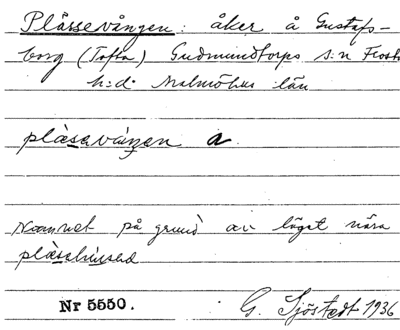 Plåssevången: åker å Gustafs-
borg (Tofta) Gudmundtorps s:n Frosta
h:d. Malmöhus län
plåsavången a
Namnet på grund av läget nära
plåsahused
Nr 5550. G. Sjöstedt 1936